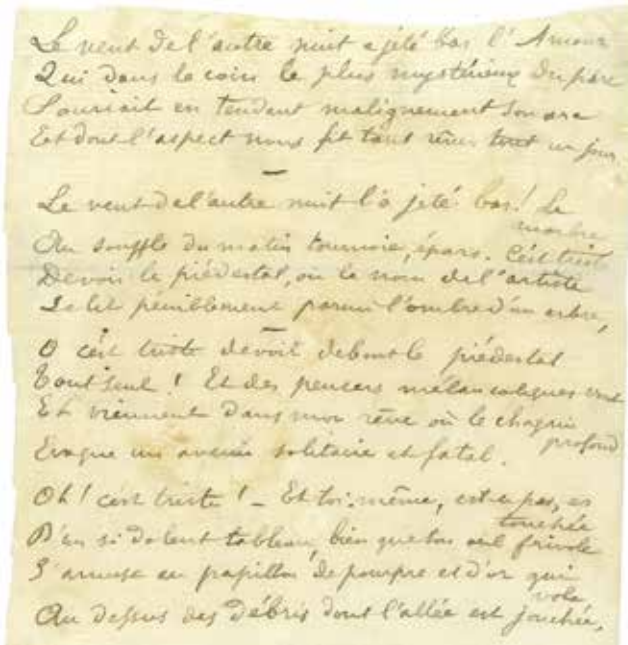 Le vent de l'autre nuit a jeté bas l'Amour
Qui dans le coin le plus mystérieux du parc
Souriait en tendant malignement son arc
Et dont l'aspect nous fit tant rêver tout un jour.
Le vent de l'autre nuit l'a jeté bas! Le
marbre
Au souffle du matin tournoie, épars. C'est triste
De voir le piédestal, où le nom de l'artiste
Se lit péniblement parmi l'ombre d'un arbre,
O c'est triste de voir debout le piédestal
Tout seul! Et des pensers mélancoliques vont
Et viennent dans mon rêve où le chagrin
profond
Evoque un avenir solitaire et fatal.
Oh! c'est triste! - Et toi-même, est-ce pas, es
touchée
D'un si dolent tableau, bien que ton œil frivole
S'amuse au papillon de pourpre et d'or qui
vole
Au dessus des débris dont l'allée est jonchée.